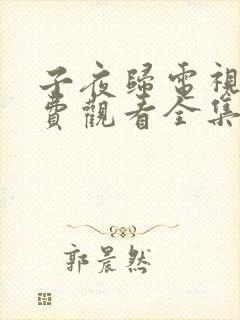 子夜歸電視
費觀看全集
郭晨然